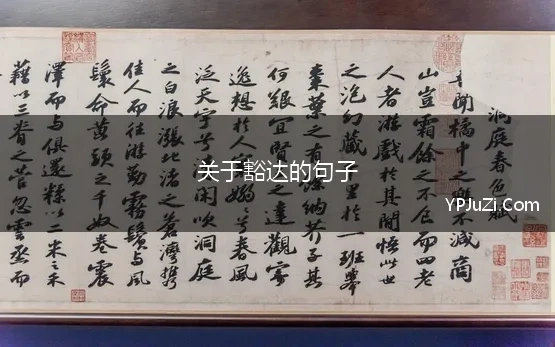 洞庭春色賦
聞橘中之樂不減商
山豈霜餘之不食而四老
人者游戲於其間悟此世
之泡幻藏里於一班舉
棗葉之有餘納芥子其
何艱宜賢之達觀寄
逸想於人嫋嫋兮春風
泛天宇兮閑吹洞庭
之白浪漲北渚之蒼灣攜
佳人而往游勒霧鬢與風
鬟命黃頭之千奴卷震
澤而與俱還糅以二米之禾
藉以三脊之菅忽雲蒸而
关于豁达的句子
YPJuZi.Com